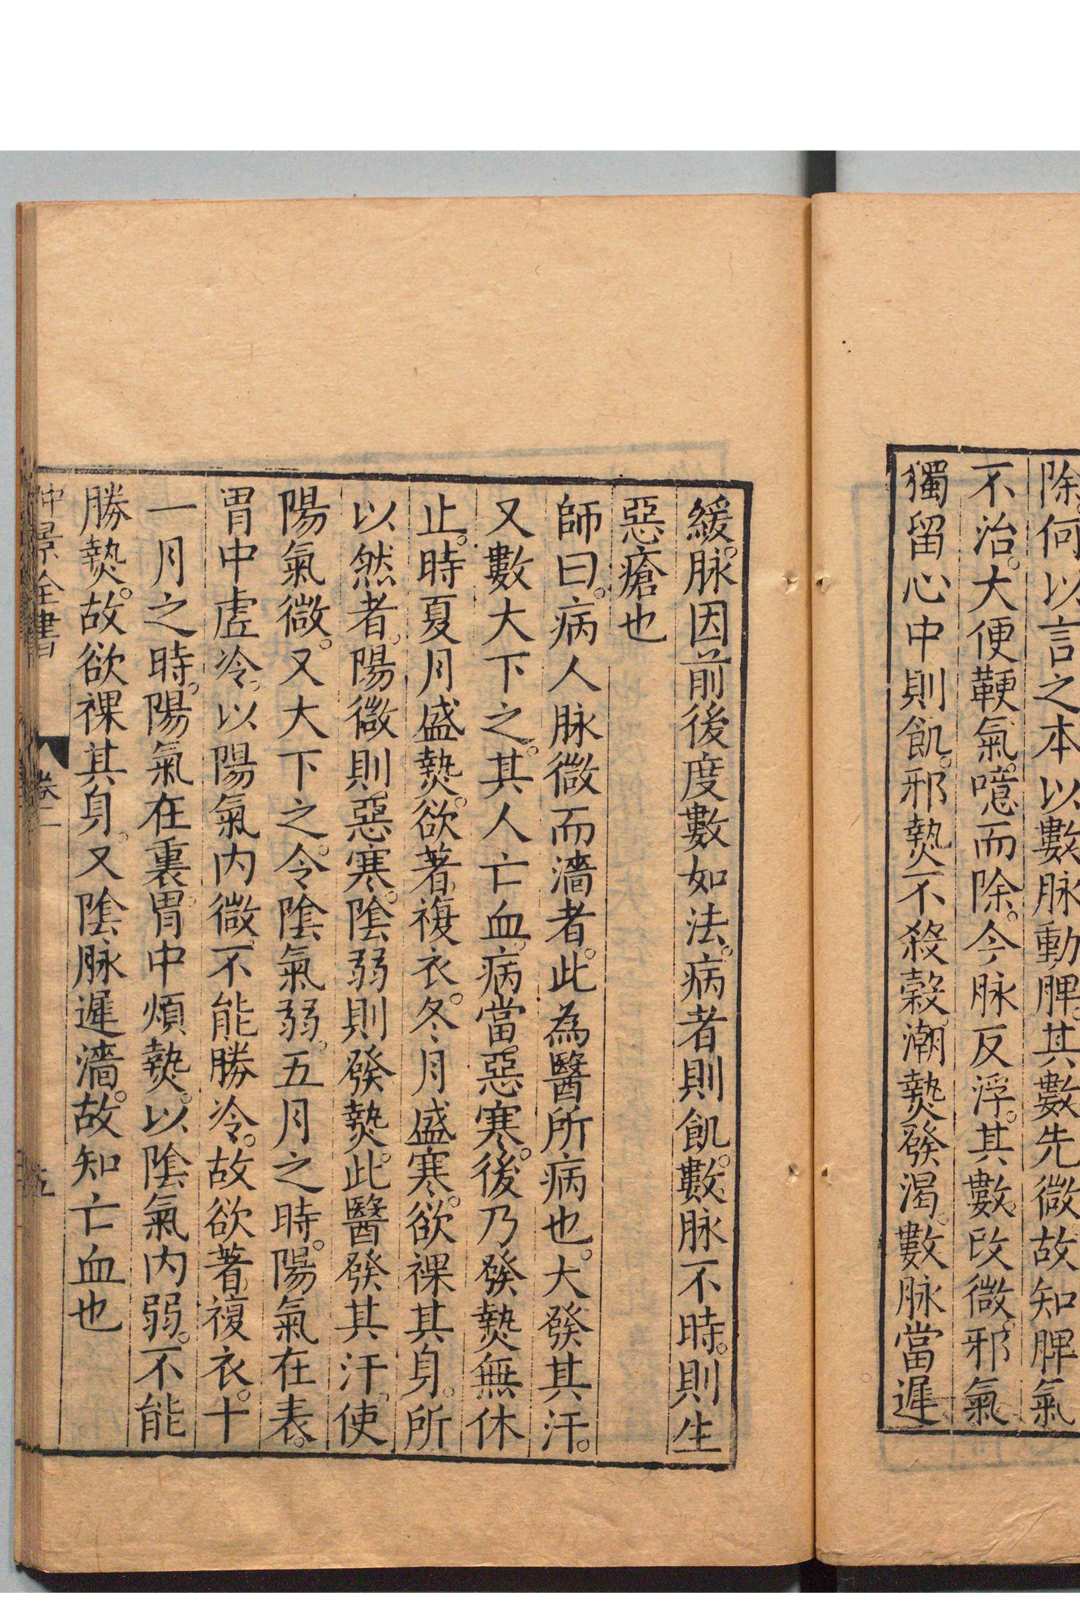 除。何以言之本以數脉動脾。其數先微故知脾氣
不治。大便鞕氣。噫而除。今脉反浮。其數改微邪氣
獨留心中則飢。邪熱不殺穀。潮熱發渴。數脉當遲
緩。脉因前後度數如法。病者則飢。數脉不時。則生
惡瘡也
師曰。病人脉微而濇者。此為醫所病也。大發其汗。
又數大下之。其人亡血。病當惡寒。後乃發熱無休
止。時夏月盛熱。欲著複衣。冬月盛寒。欲裸其身。所
以然者。陽微則惡寒。陰弱則發熱。此醫發其汗。使
陽氣微。又大下之。令陰氣弱。五月之時。陽氣在表。
胃中虛冷。以陽氣內微。不能勝冷。故欲著複衣。十
一月之時。陽氣在裏。胃中煩熱。以陰氣內弱。不能
勝熱。故欲裸其身。又陰脉遲濇。故知亡血也
仲景全書 卷二 九